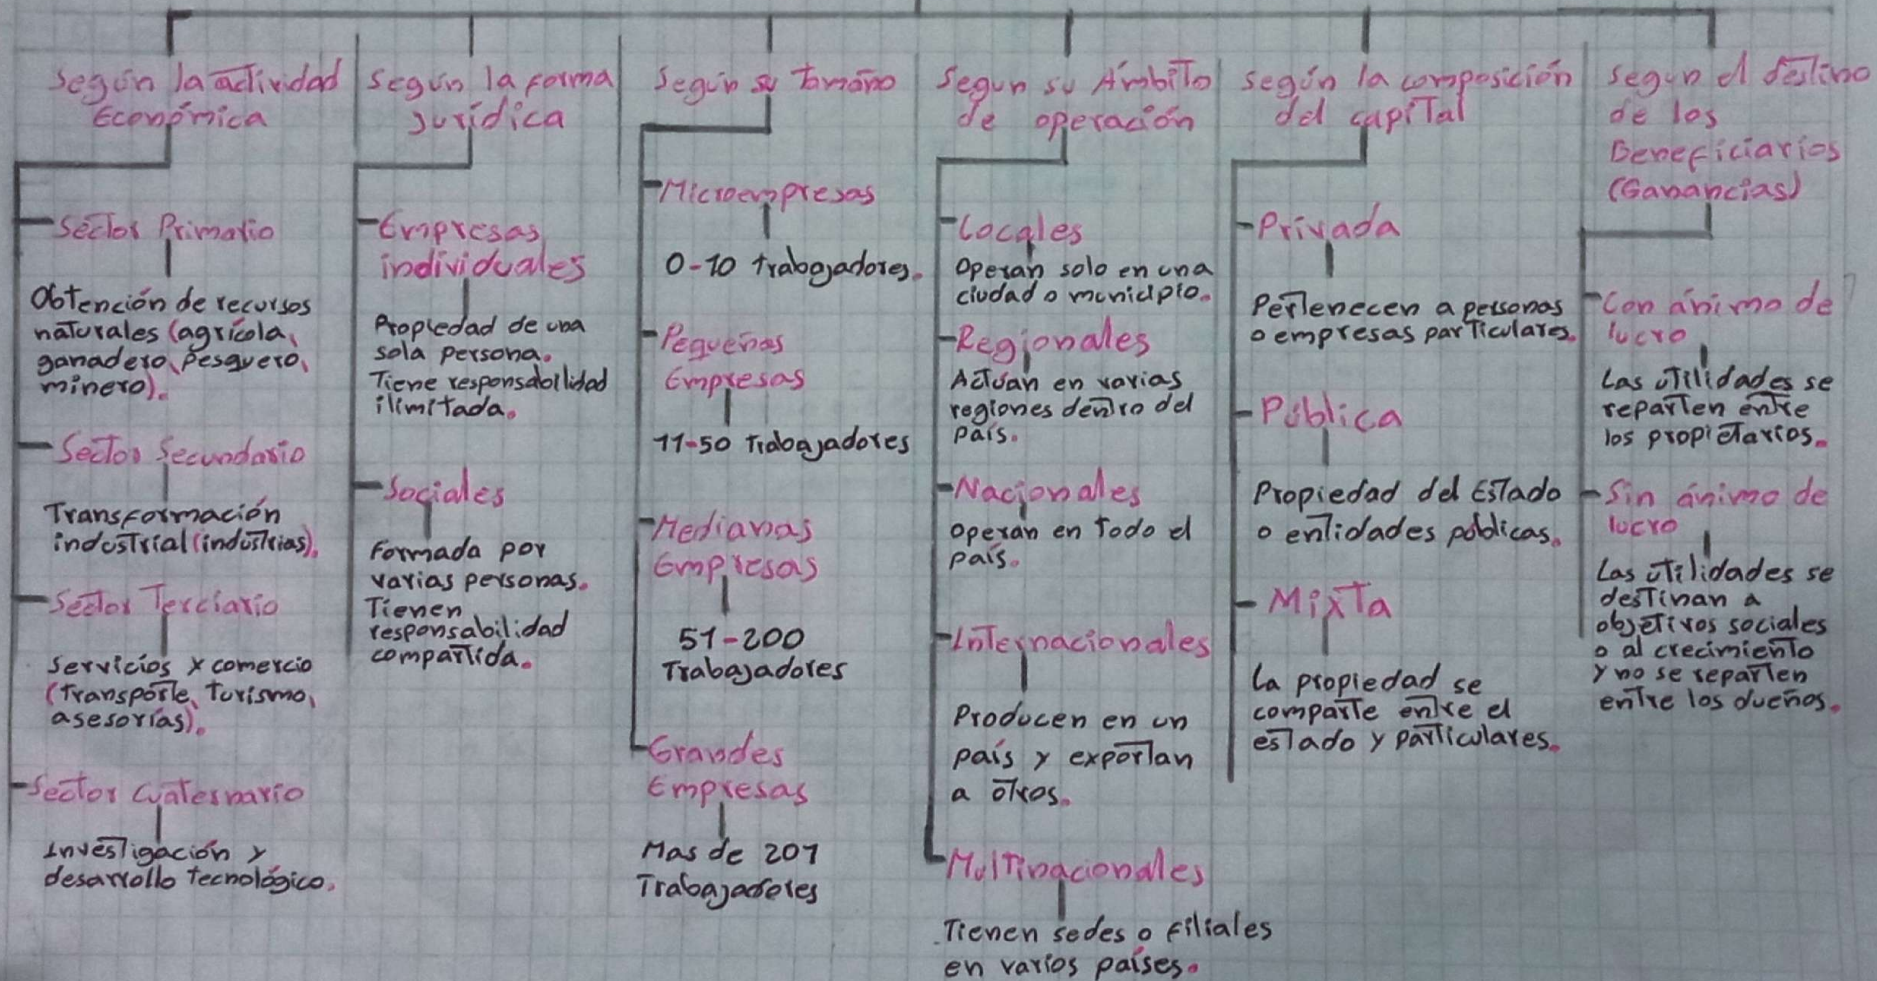 Según la actividad
Económica
Sector Primario
Obtención de recursos
naturales (agrícola,
ganadero, pesquero,
minero).
Sector Secundario
Transformación
industrial (industrias).
Sector Terciario
Servicios y comercio
(Transporte, Turismo,
asesorías).
Sector Cuaternario
Investigación y
desarrollo Tecnológico.
Según la forma
jurídica
Empresas
individuales
Propiedad de una
sola persona.
Tiene responsabilidad
ilimitada.
Sociales
Formada por
varias personas.
Tienen
responsabilidad
compartida.
Según su Tamaño
Microempresas
0-10 Trabajadores.
Pequeñas
Empresas
11-50 Trabajadores
Medianas
Empresas
51-200
Trabajadores
Grandes
Empresas
Mas de 201
Trabajadores
Segun su Ámbito
de operación
Locales
Operan solo en una
ciudad o municipio.
Regionales
Actúan en varias
regiones dentro del
país.
Nacionales
operan en Todo el
país.
Internacionales
Producen en un
país y exportan
a otros.
Multinacionales
Tienen sedes o filiales
en varios países.
Según la composición
del capital
Privada
Pertenecen a personas
o empresas particulares.
Pública
Propiedad del Estado
o entidades públicas.
Mixta
La propiedad se
comparte entre el
estado y particulares.
Segun el destino
de los
Beneficiarios
(Ganancias)
Con ánimo de
lucro
Las utilidades se
reparten entre
los propietarios.
Sin ánimo de
lucro
Las utilidades se
destinan a
objetivos sociales
o al crecimiento
y no se reparten
entre los dueños.